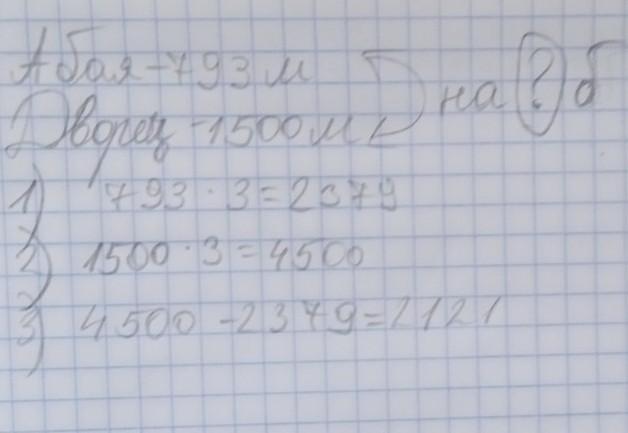 Абая - 793 м
Дворец - 1500 м на ? б
1) 793 · 3 = 2379
2) 1500 · 3 = 4500
3) 4500 - 2379 = 2121